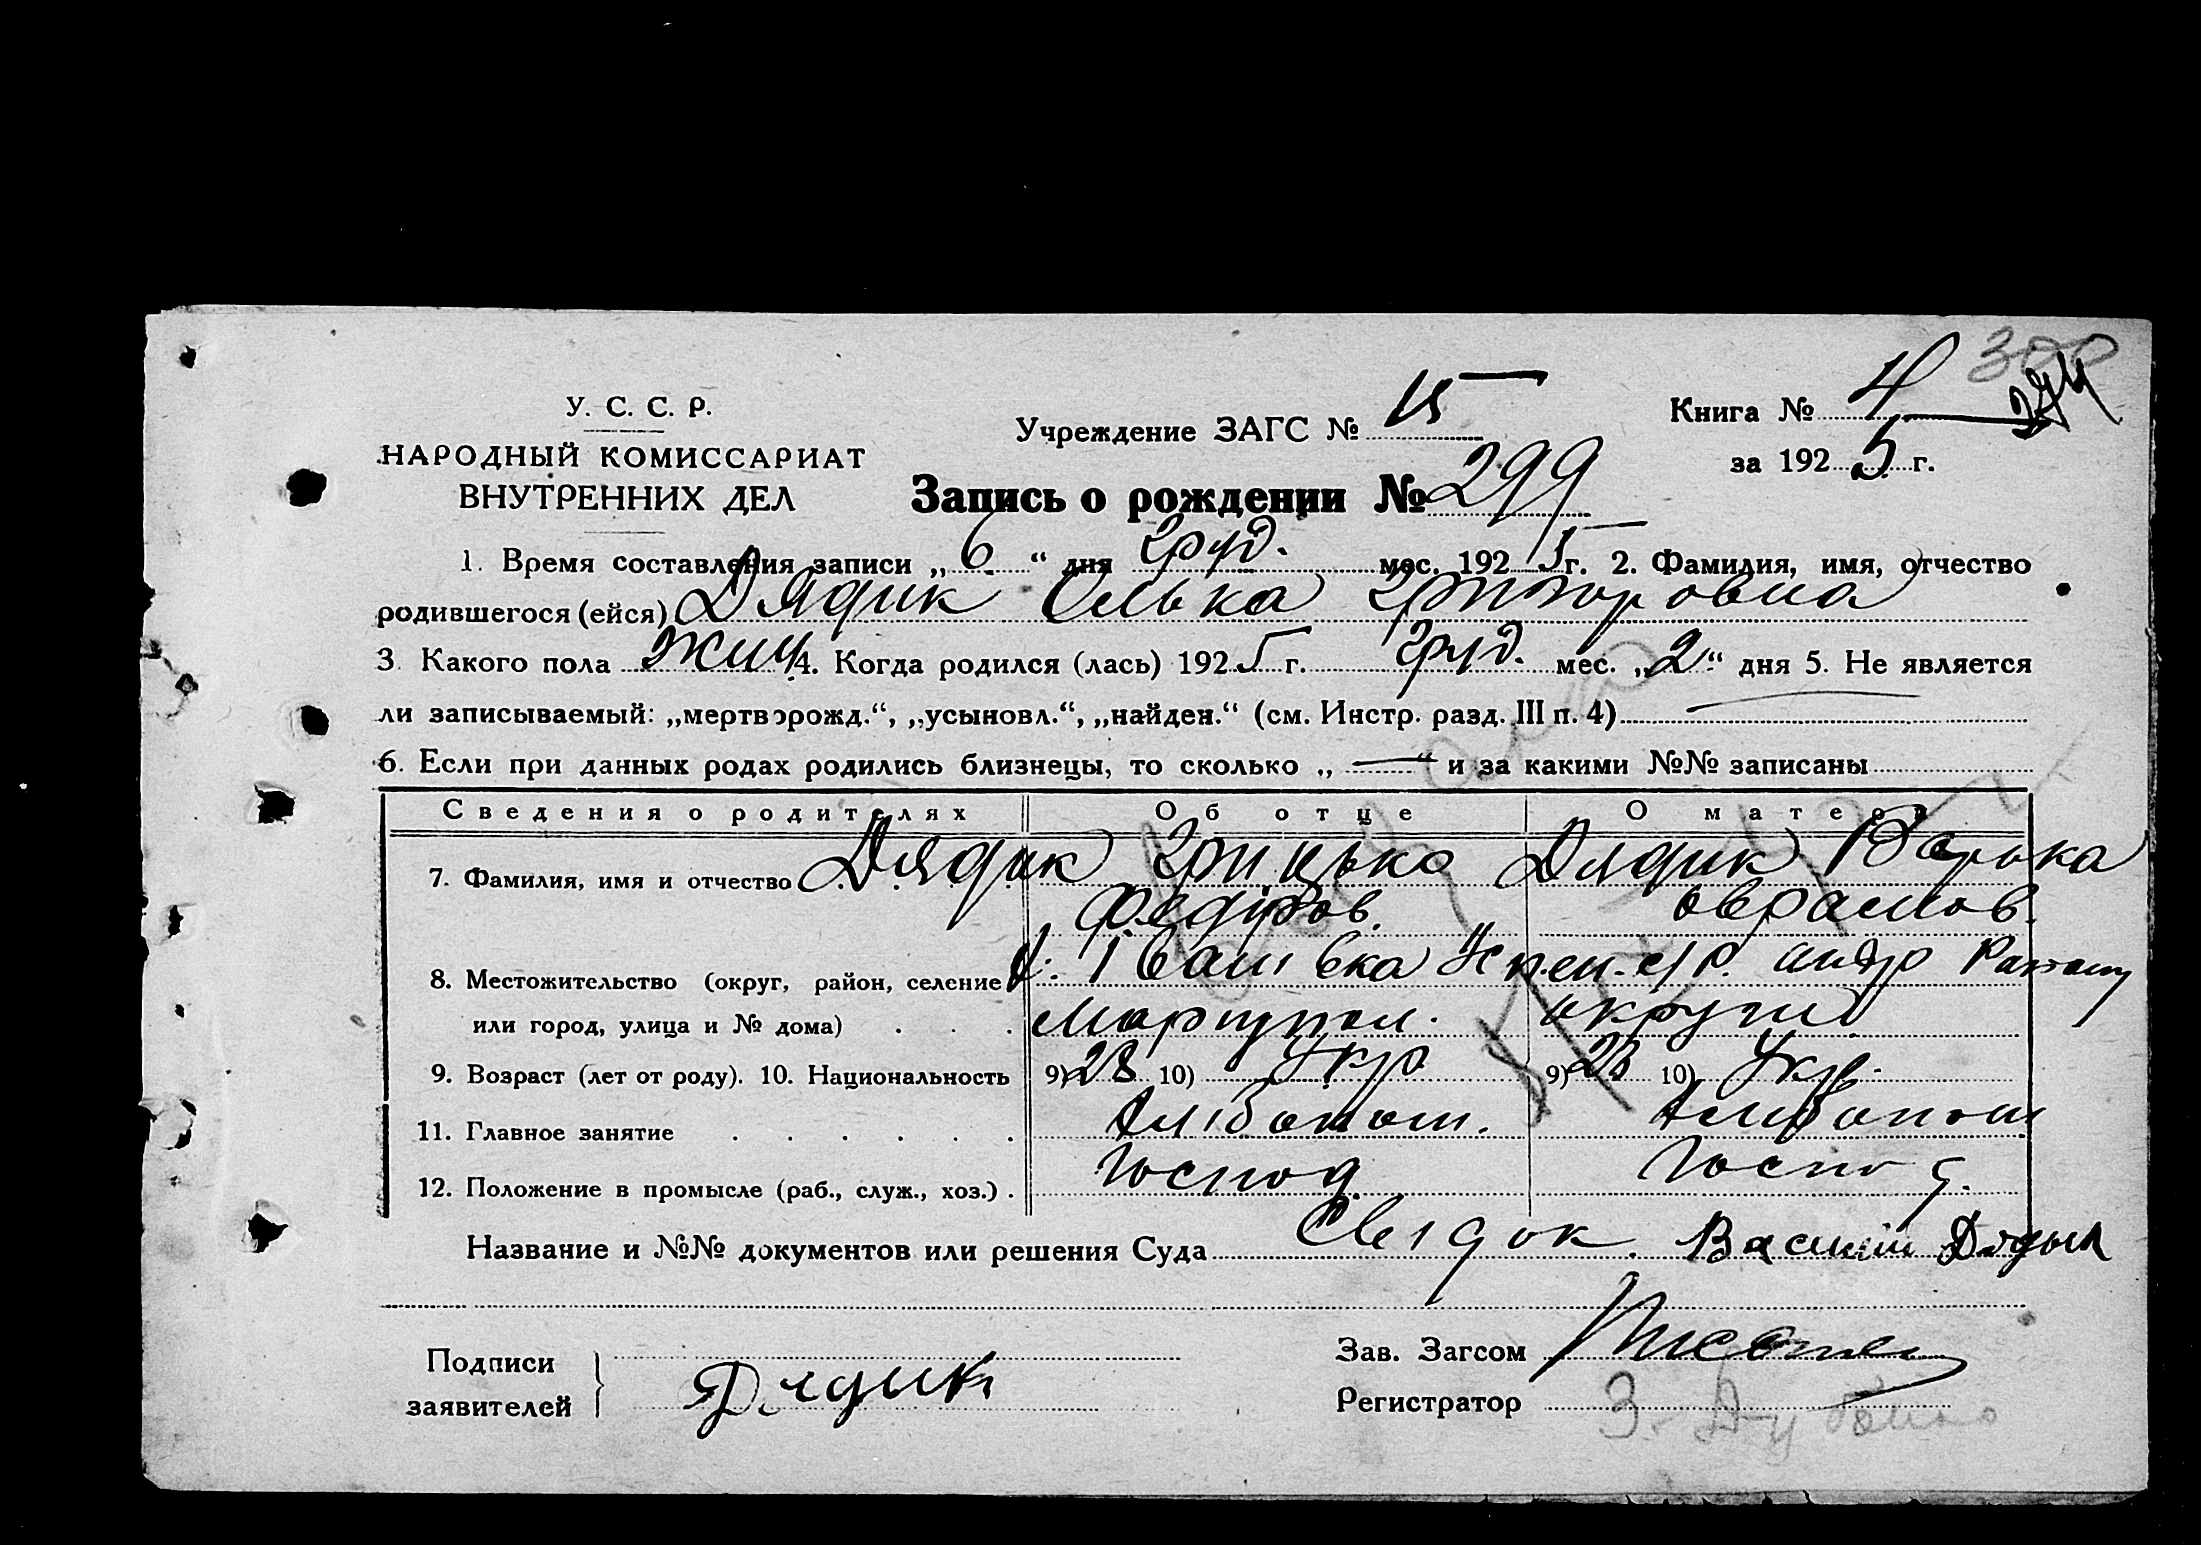 300
274
У. С. С. Р.
НАРОДНЫЙ КОМИССАРИАТ
ВНУТРЕННИХ ДЕЛ
Учреждение ЗАГС № 15
Книга № 4
за 1925 г.
Запись о рождении № 299
1. Время составления записи „6“ дня груд. мес. 1925 г. 2. Фамилия, имя, отчество
родившегося (ейся) Дядик Олька Григоровна
3. Какого пола жин 4. Когда родился (лась) 1925 г. груд. мес. „2“ дня 5. Не является
ли записываемый: „мертворожд.“, „усыновл.“, „найден.“ (см. Инстр. разд. III п. 4) —
6. Если при данных родах родились близнецы, то сколько „—“ и за какими №№ записаны
Сведения о родителях Об отце О матери
7. Фамилия, имя и отчество Дядик Грицько Дядик Варька
Федоров. Оврамов.
8. Местожительство (округ, район, селение с. Іванівка Успен. с/р.
или город, улица и № дома) Маріупол. округи
9. Возраст (лет от роду). 10. Национальность 9) 28 10) Укр. 9) 28 10) Укр.
11. Главное занятие Хлібопаш. Хлібопаш
12. Положение в промысле (раб., служ., хоз.) Господ. Господ.
Название и №№ документов или решения Суда Свідок. Василій
Подписи
заявителей Дядик
Зав. Загсом
Регистратор